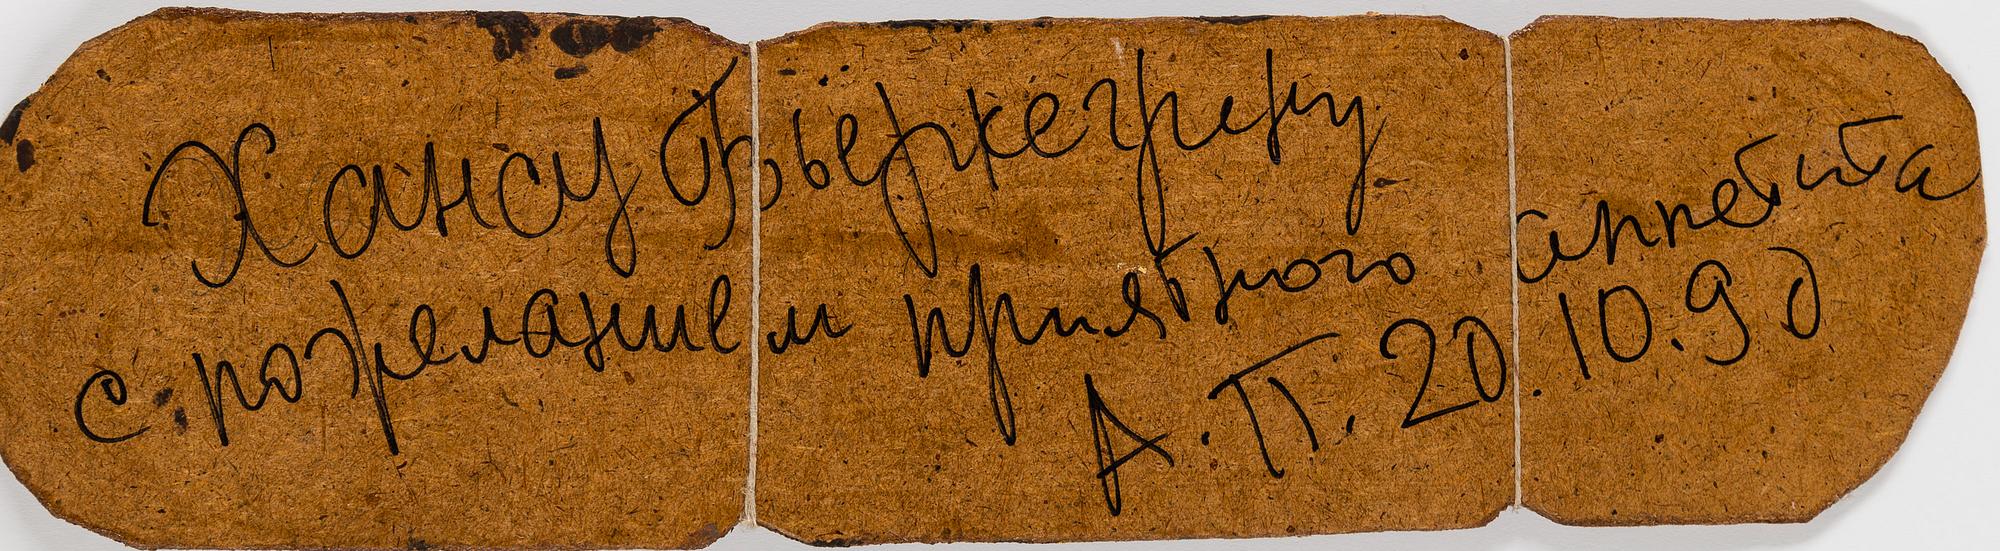 Хансу Бьеркегрену
с пожеланием приятного аппетита
А.П. 20.10.90